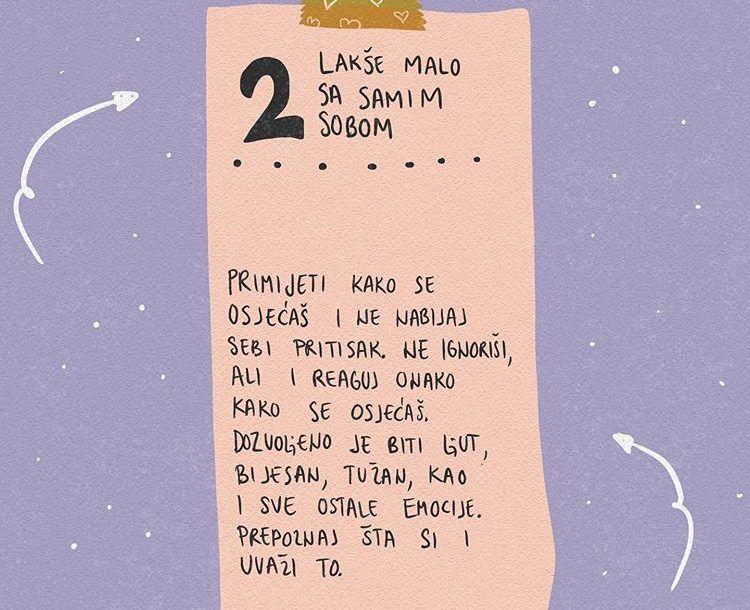 2
LAKŠE MALO
SA SAMIM
SOBOM
PRIMIJETI KAKO SE
OSJEĆAŠ I NE NABIJAJ
SEBI PRITISAK. NE IGNORIŠI,
ALI I REAGUJ ONAKO
KAKO SE OSJEĆAŠ.
DOZVOLJENO JE BITI LJUT,
BIJESAN, TUŽAN, KAO
I SVE OSTALE EMOCIJE.
PREPOZNAJ ŠTA SI I
UVAŽI TO.